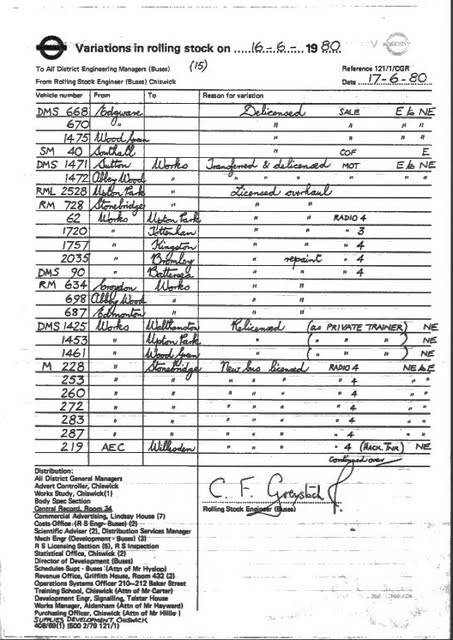 Variations in rolling stock on ..... 16-6- ..... 1980
To All District Engineering Managers (Buses) (15) Reference 121/T/CGR
From Rolling Stock Engineer (Buses) Chiswick Date 17-6-80
Vehicle number From To Reason for variation
DMS 668 Edgware Delicensed SALE E to NE
670 " " " " "
1475 Wood Green " " " "
SM 40 Southall " COF E
DMS 1471 Sutton Works Transferred & delicensed MOT E to NE
1472 Abbey Wood " " " " " "
RML 2528 Upton Park " Licensed overhaul
RM 728 Stonebridge " " "
62 Works Upton Park " " RADIO 4
1720 " Tottenham " " " 3
1757 " Kingston " " " 4
2035 " Bromley " repaint " 4
DMS 90 " Battersea " " " 4
RM 634 Croydon Works " "
698 Abbey Wood " " "
687 Edmonton " " "
DMS 1425 Works Walthamstow Relicensed (as PRIVATE TRAINER) NE
1453 " Upton Park " ( " " " ) NE
1461 " Wood Green " ( " " " ) NE
M 228 " Stonebridge New bus licensed RADIO 4 NE to E
253 " " " " " " 4 " "
260 " " " " " " 4 " "
272 " " " " " " 4 " "
283 " " " " " " 4 " "
287 " " " " " " 4 " "
219 AEC Willesden " " " " 4 NE
Continued over
Distribution:
All District General Managers
Advert Controller, Chiswick
Works Study, Chiswick (1)
Body Spec Section
Central Record, Room 34
Commercial Advertising, Lindsay House (7)
Costs Office (R S Engr- Buses) (2)
Scientific Adviser (2), Distribution Services Manager
Mech Engr (Development - Buses) (3)
R S Licensing Section (5), R S Inspection
Statistical Office, Chiswick (2)
Director of Development (Buses)
Schedules Supt - Buses (Attn of Mr Hyslop)
Revenue Office, Griffith House, Room 432 (2)
Operations Systems Officer 210-212 Baker Street
Training School, Chiswick (Attn of Mr Carter)
Development Engr, Signalling, Telstar House
Works Manager, Aldenham (Attn of Mr Hayward)
Purchasing Officer, Chiswick (Attn of Mr Hillie)
SUPPLIES DEVELOPMENT, CHISWICK
Rolling Stock Engineer (Buses)